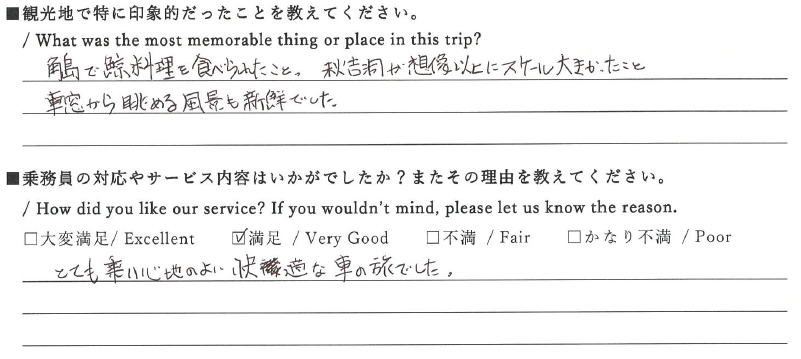 ■観光地で特に印象的だったことを教えてください。
/ What was the most memorable thing or place in this trip?
角島で鯨料理を食べられたこと。 秋吉洞が想像以上にスケール大きかったこと
車窓から眺める風景も新鮮でした。
■乗務員の対応やサービス内容はいかがでしたか？またその理由を教えてください。
/ How did you like our service? If you wouldn't mind, please let us know the reason.
□大変満足/ Excellent ☑満足 / Very Good □不満 / Fair □かなり不満 / Poor
とても乗り心地のよい快適な車の旅でした。